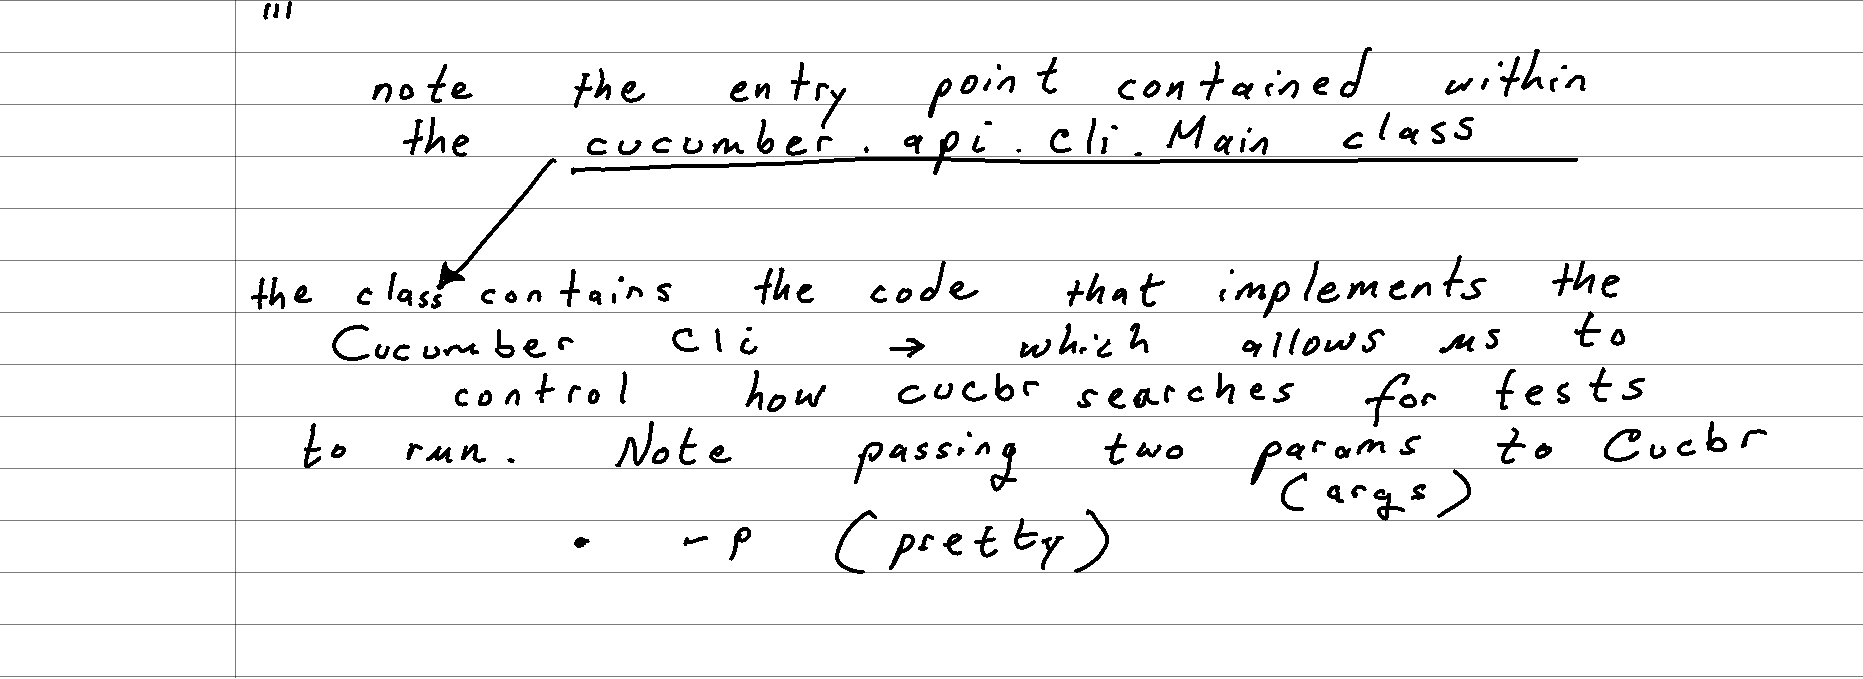 note the entry point contained within
the cucumber.api.cli.Main class
the class contains the code that implements the
Cucumber Cli → which allows us to
control how cucbr searches for tests
to run. Note passing two params to Cucbr
(args)
• -p (pretty)